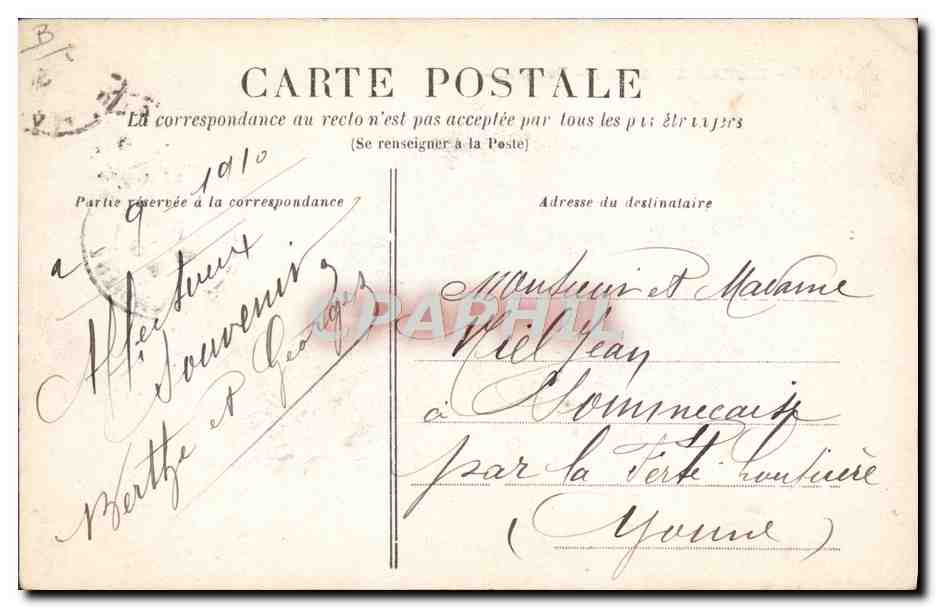 B
CARTE POSTALE
La correspondance au recto n'est pas acceptée par tous les pays étrangers
(Se renseigner à la Poste)
Partie réservée à la correspondance
9 1910
Affectueux
Souvenir
Berthe et Georges
Adresse du destinataire
Monsieur et Madame
Niel Jean
à Sommecaise
par la Ferté Loutière
(Yonne)
CPARHIL